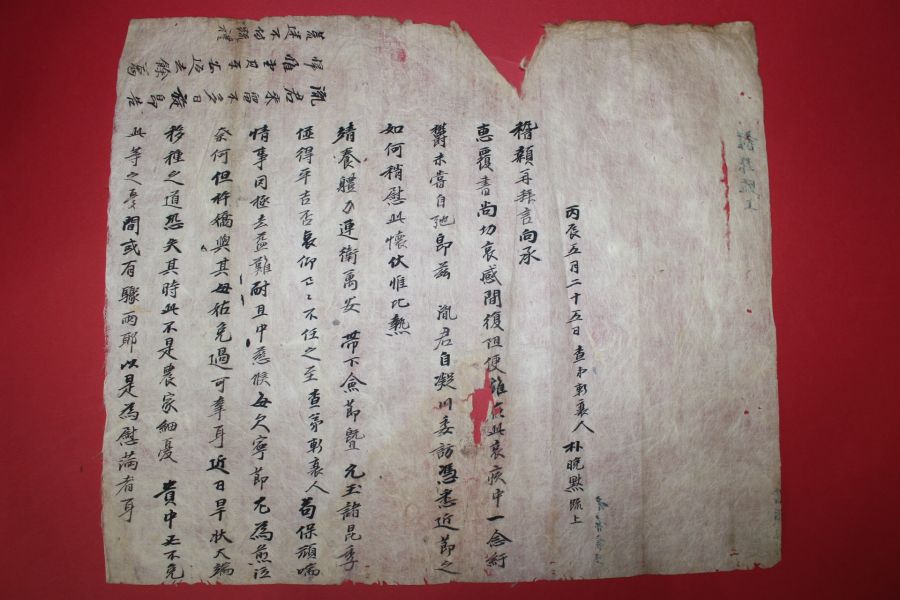 稽顙再拜言向承
惠覆書尚切哀感間復阻便雖在此哀疚中一念紆
欝未嘗自弛昂茲 胤君自凝川委訪憑悉近節之
如何稍慰此懷伏惟比熱
靖養體力連衛萬安 帶下僉節曁 允玉諸昆季
俱得平吉否哀仰區〻不任之至査弟斬衰人苟保頑喘
情事罔極去益難耐且中慈候每欠寧節尤為煎泣
奈何但許橋與其母粘免過可幸耳近日旱狀大端
移種之道恐失其時此不是農家細憂 貴中正不免
此等之歎間或有驟雨耶以是為慰滿者耳
胤君來留不多日旋即告
荒迷不備疏禮
丙辰五月二十五日 査弟斬衰人 朴晩點疏上